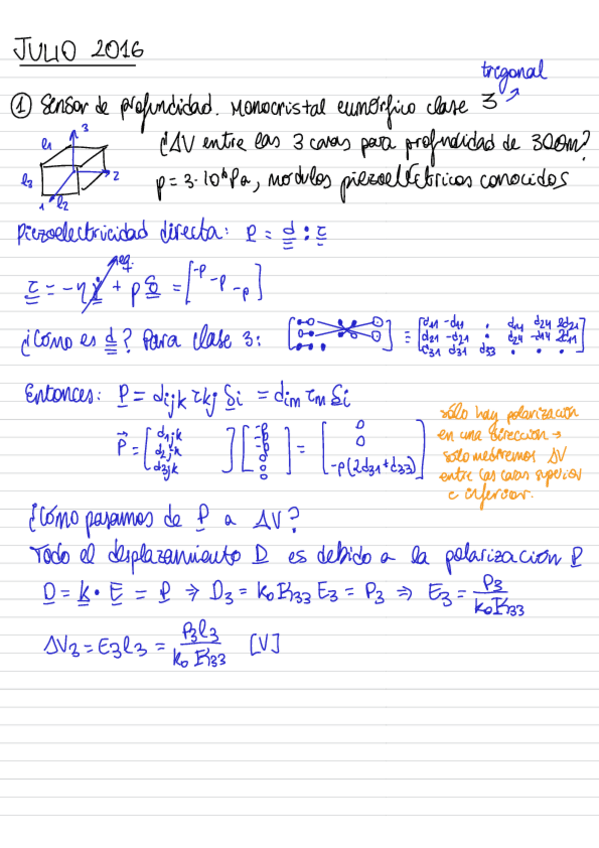 JULIO 2016
trigonal
① Sensor de profundidad. Monocristal eumórfico clase 3
¿ΔV entre las 3 caras para profundidad de 300m?
p = 3·10⁶Pa, módulos piezoeléctricos conocidos
l1 3
l3 2
1 l2
Piezoelectricidad directa: P = d : τ
eq.
τ = -η γ̇ + p δ = [-p -p -p]
¿Cómo es d? Para clase 3: [ ] ≡ [d11 -d11 · d14 d24 2d21
d21 -d21 · d24 -d14 2d11
d31 d31 d33 · · ·]
Entonces: P = dijk τkj δi = dim τm δi
P = [d1jk d2jk d3jk] [-p -p -p 0 0 0] = [0 0 -p(2d31+d33)]
sólo hay polarización
en una dirección →
sólo mediremos ΔV
entre las caras superior
e inferior.
¿Cómo pasamos de P a ΔV?
Todo el desplazamiento D es debido a la polarización P
D = k · E = P ⇒ D3 = k0 K33 E3 = P3 ⇒ E3 = P3 / k0 K33
ΔV3 = E3 l3 = P3 l3 / k0 K33 [V]